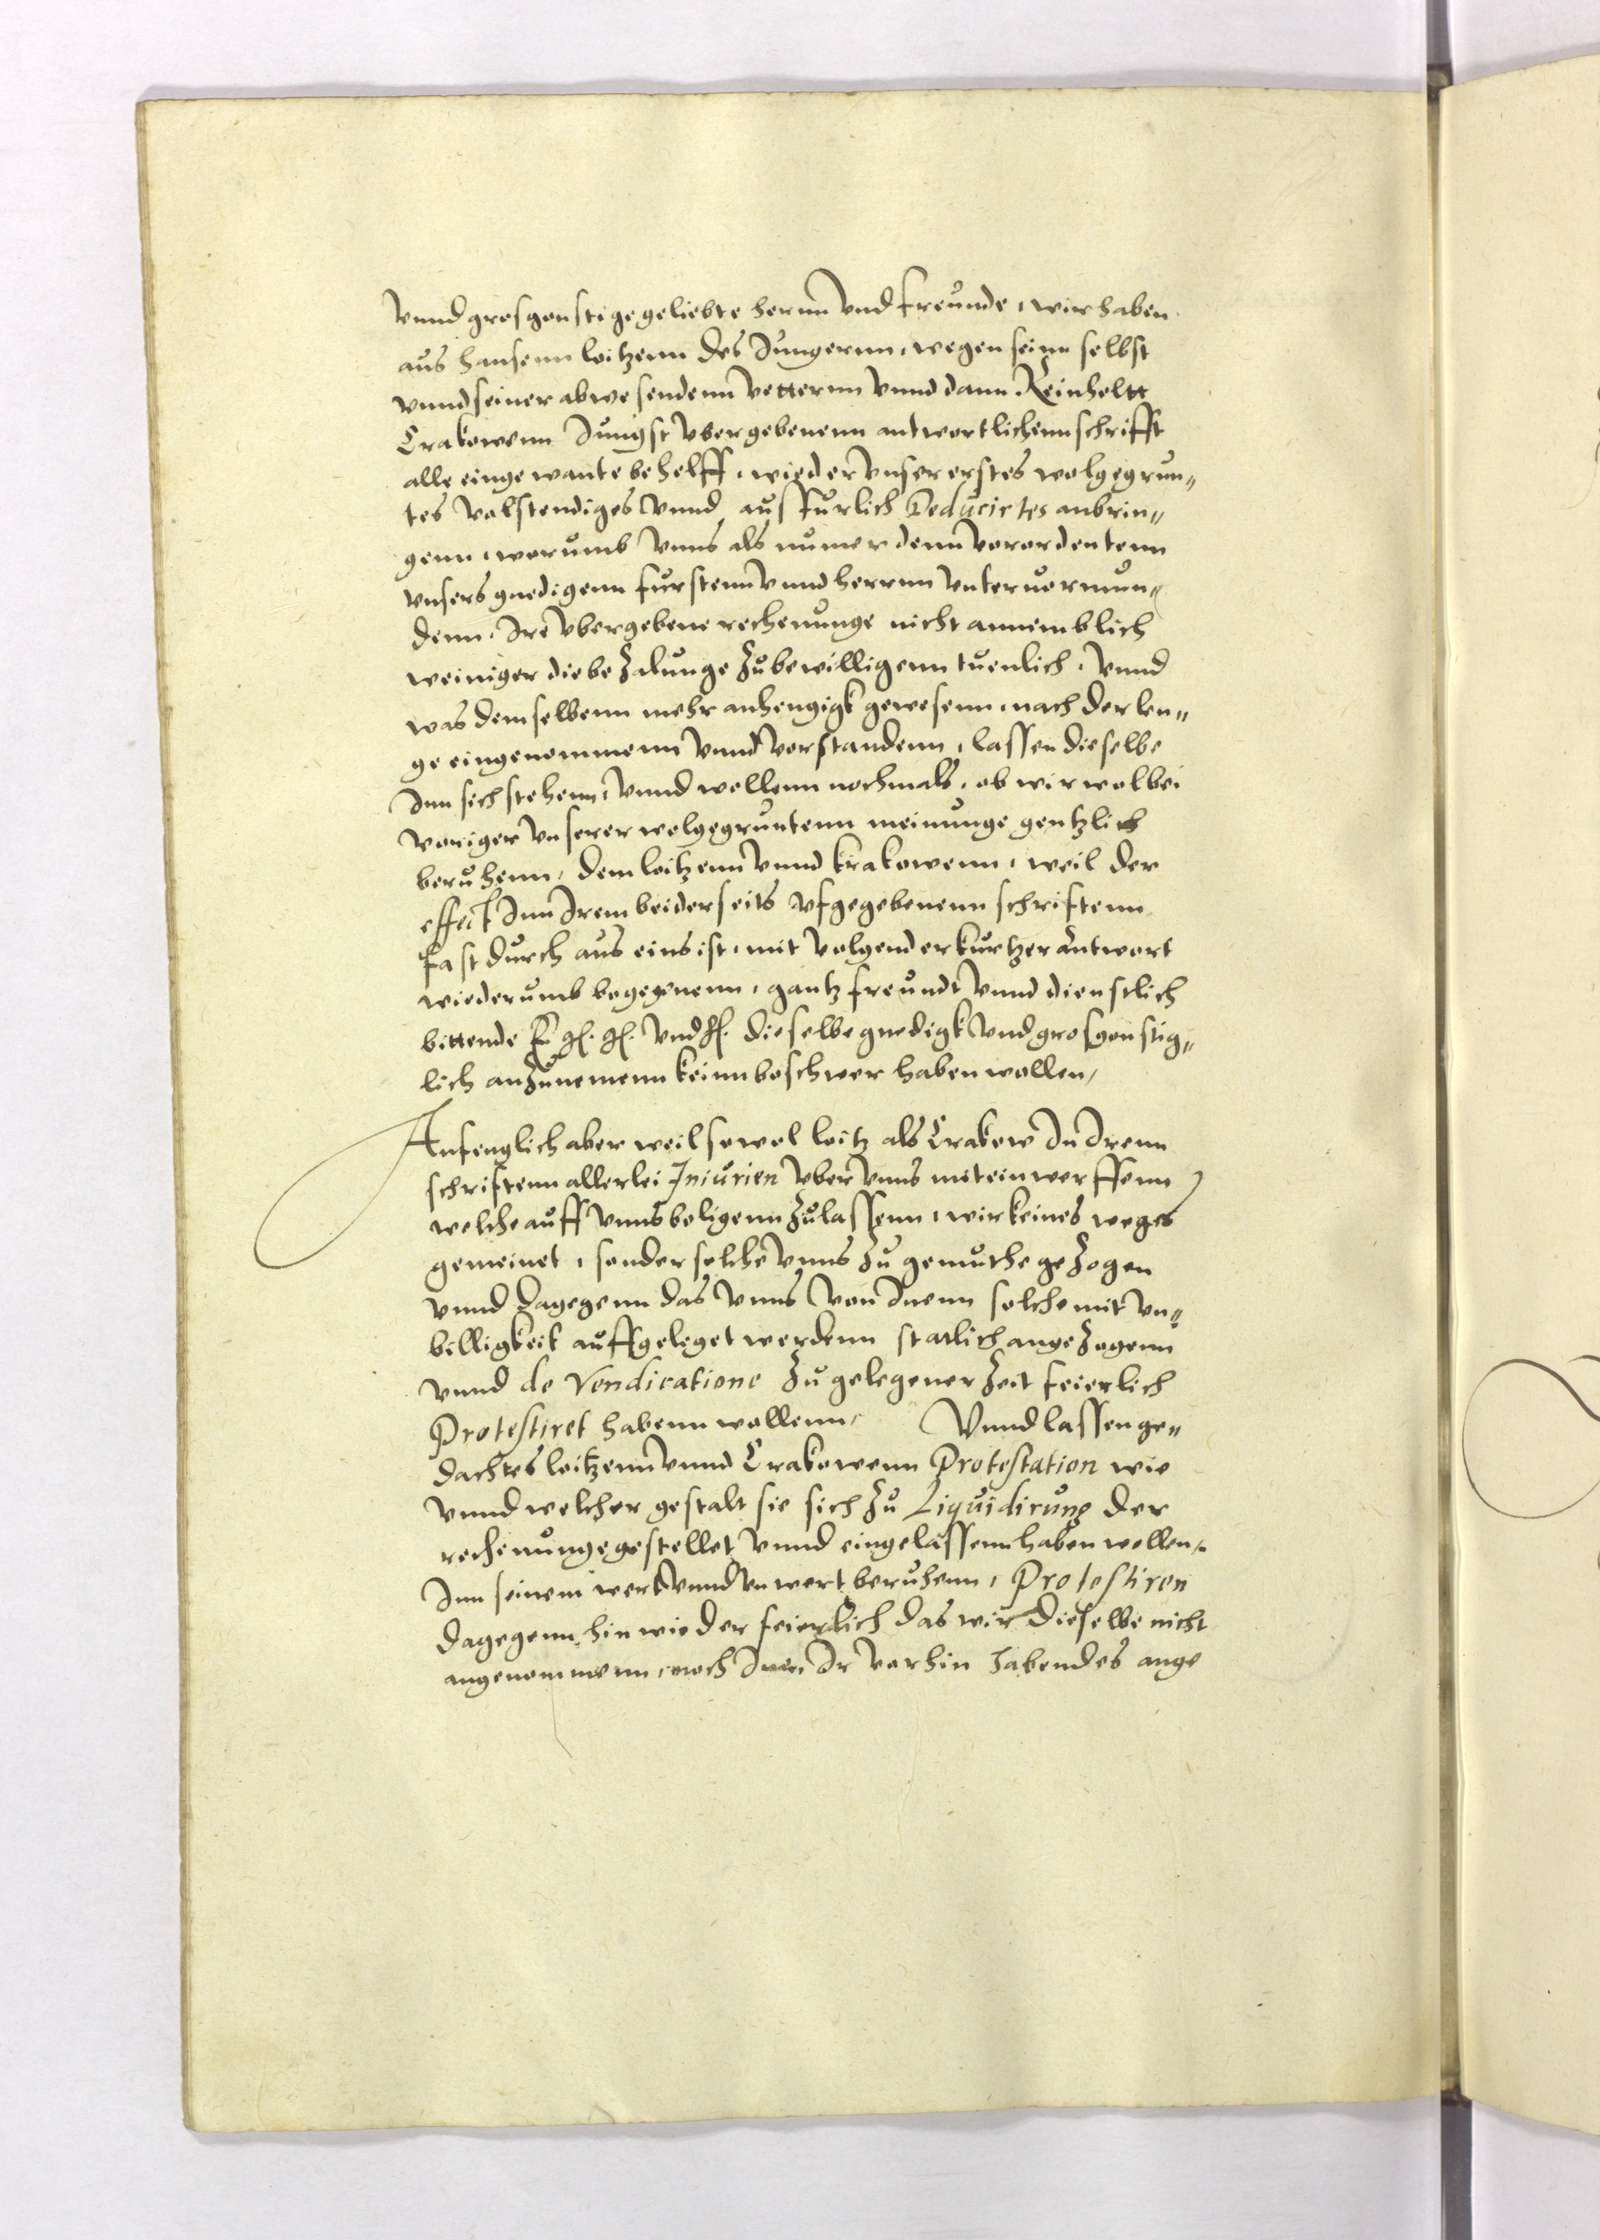 Vnnd grosgonstige geliebte hernn vnd freunde, wir haben
aus hansenn loitzenn des Jungernn, wegen seinn selbst
vnnd seiner abwesendenn vetternn vnnd dann Reinholtt
Crakowenn Jungst vbergebenenn antwortlichenn schrifft
alle eingewante behelff, wieder vnser erstes wolgegrun„
tes volstendiges vnnd ausfurlich Deducirtes anbrin„
genn, worumb vnns als numer denn verordentenn
vnsers gnedigenn furstenn vnnd herrnn vnteruormun„
denn, Ire vbergebene rechenunge nicht annemblich
weiniger die bezalunge zubewilligenn tuenlich, vnnd
was demselbenn mehr anhengigk gewesenn, nach der len„
ge eingenommenn vnnd vorstandenn, lassen dieselbe
Inn sich stehenn, vnnd wollenn nochmals, ob wir wol bei
voriger vnserer wolgegruntenn meinunge gentzlich
beruhenn, dem loitzenn vnnd krakowenn, weil der
effect Inn Irem beiderseits vfgegebenenn schriftenn
fast durch aus eins ist, mit volgender kurtzer antwort
wiederumb begegenenn, gantz freundt vnnd dienstlich
bittende E. g. g. vnd g. dieselbe gnedigk vnd grosgonstig„
lich anzunemenn keinn beschwer haben wollen,
Anfenglich aber weil sowol loitz als Crakow In Irenn
schriftenn allerlei Iniurien vber vnns mit einwerffenn
welche auff vnns beligenn zulassenn, wir keines weges
gemeinet, sonder solche vnns zu gemuthe gezogen
vnnd dagegenn das vnns von Inenn solche mit vn„
billigkeit auffgeleget werdenn statlich angezogenn
vnnd de Vendicatione zu gelegener zeit feierlich
Protestiret habenn wollenn, Vnnd lassen ge„
dachtes loitzenn vnnd Crakowenn Protestation wie
vnnd welcher gestalt sie sich zu Liquidirung der
rechenunge gestellet vnnd eingelassenn haben wollen,
Inn seinem wert vnnd vnwert beruhenn, Protestiren
dagegenn hinwieder feierlich das wir dieselbe nicht
angenommenn, noch Inen Ir vorhin habendes ange